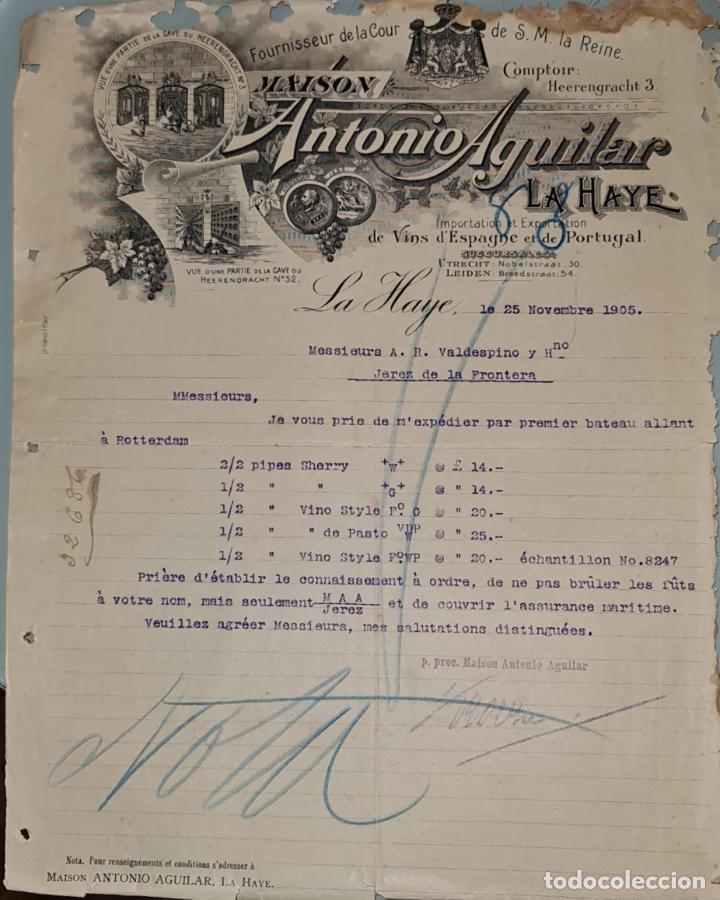 VUE D'UNE PARTIE DE LA CAVE DU HEERENGRACHT Nº 3.
Fournisseur de la Cour de S. M. la Reine.
Comptoir:
Heerengracht 3.
MAISON
Antonio Aguilar
LA HAYE.
88
Importation et Exportation
de Vins d'Espagne et de Portugal.
SUCCURSALES:
UTRECHT: Nobelstraat, 30.
LEIDEN: Breedstraat, 54.
VUE D'UNE PARTIE DE LA CAVE DU
HEERENGRACHT Nº 52.
La Haye, le 25 Novembre 1905.
Messieurs A. R. Valdespino y Hno
Jerez de la Frontera
MMessieurs,
Je vous prie de m'expédier par premier bateau allant
à Rotterdam
2/2 pipes Sherry +W+ @ £ 14.-
1/2 " " +G+ @ " 14.-
1/2 " Vino Style Fº G @ " 20.-
1/2 " " de Pasto @ " 25.-
1/2 " Vino Style FºWP @ " 20.- échantillon No.8247
Prière d'établir le connaissement à ordre, de ne pas brûler les fûts
à votre nom, mais seulement M A A / Jerez et de couvrir l'assurance maritime.
Veuillez agréer Messieurs, mes salutations distinguées.
p. proc. Maison Antonio Aguilar
Nota
Nota. Pour renseignements et conditions s'adresser à
MAISON ANTONIO AGUILAR, LA HAYE.
todocoleccion